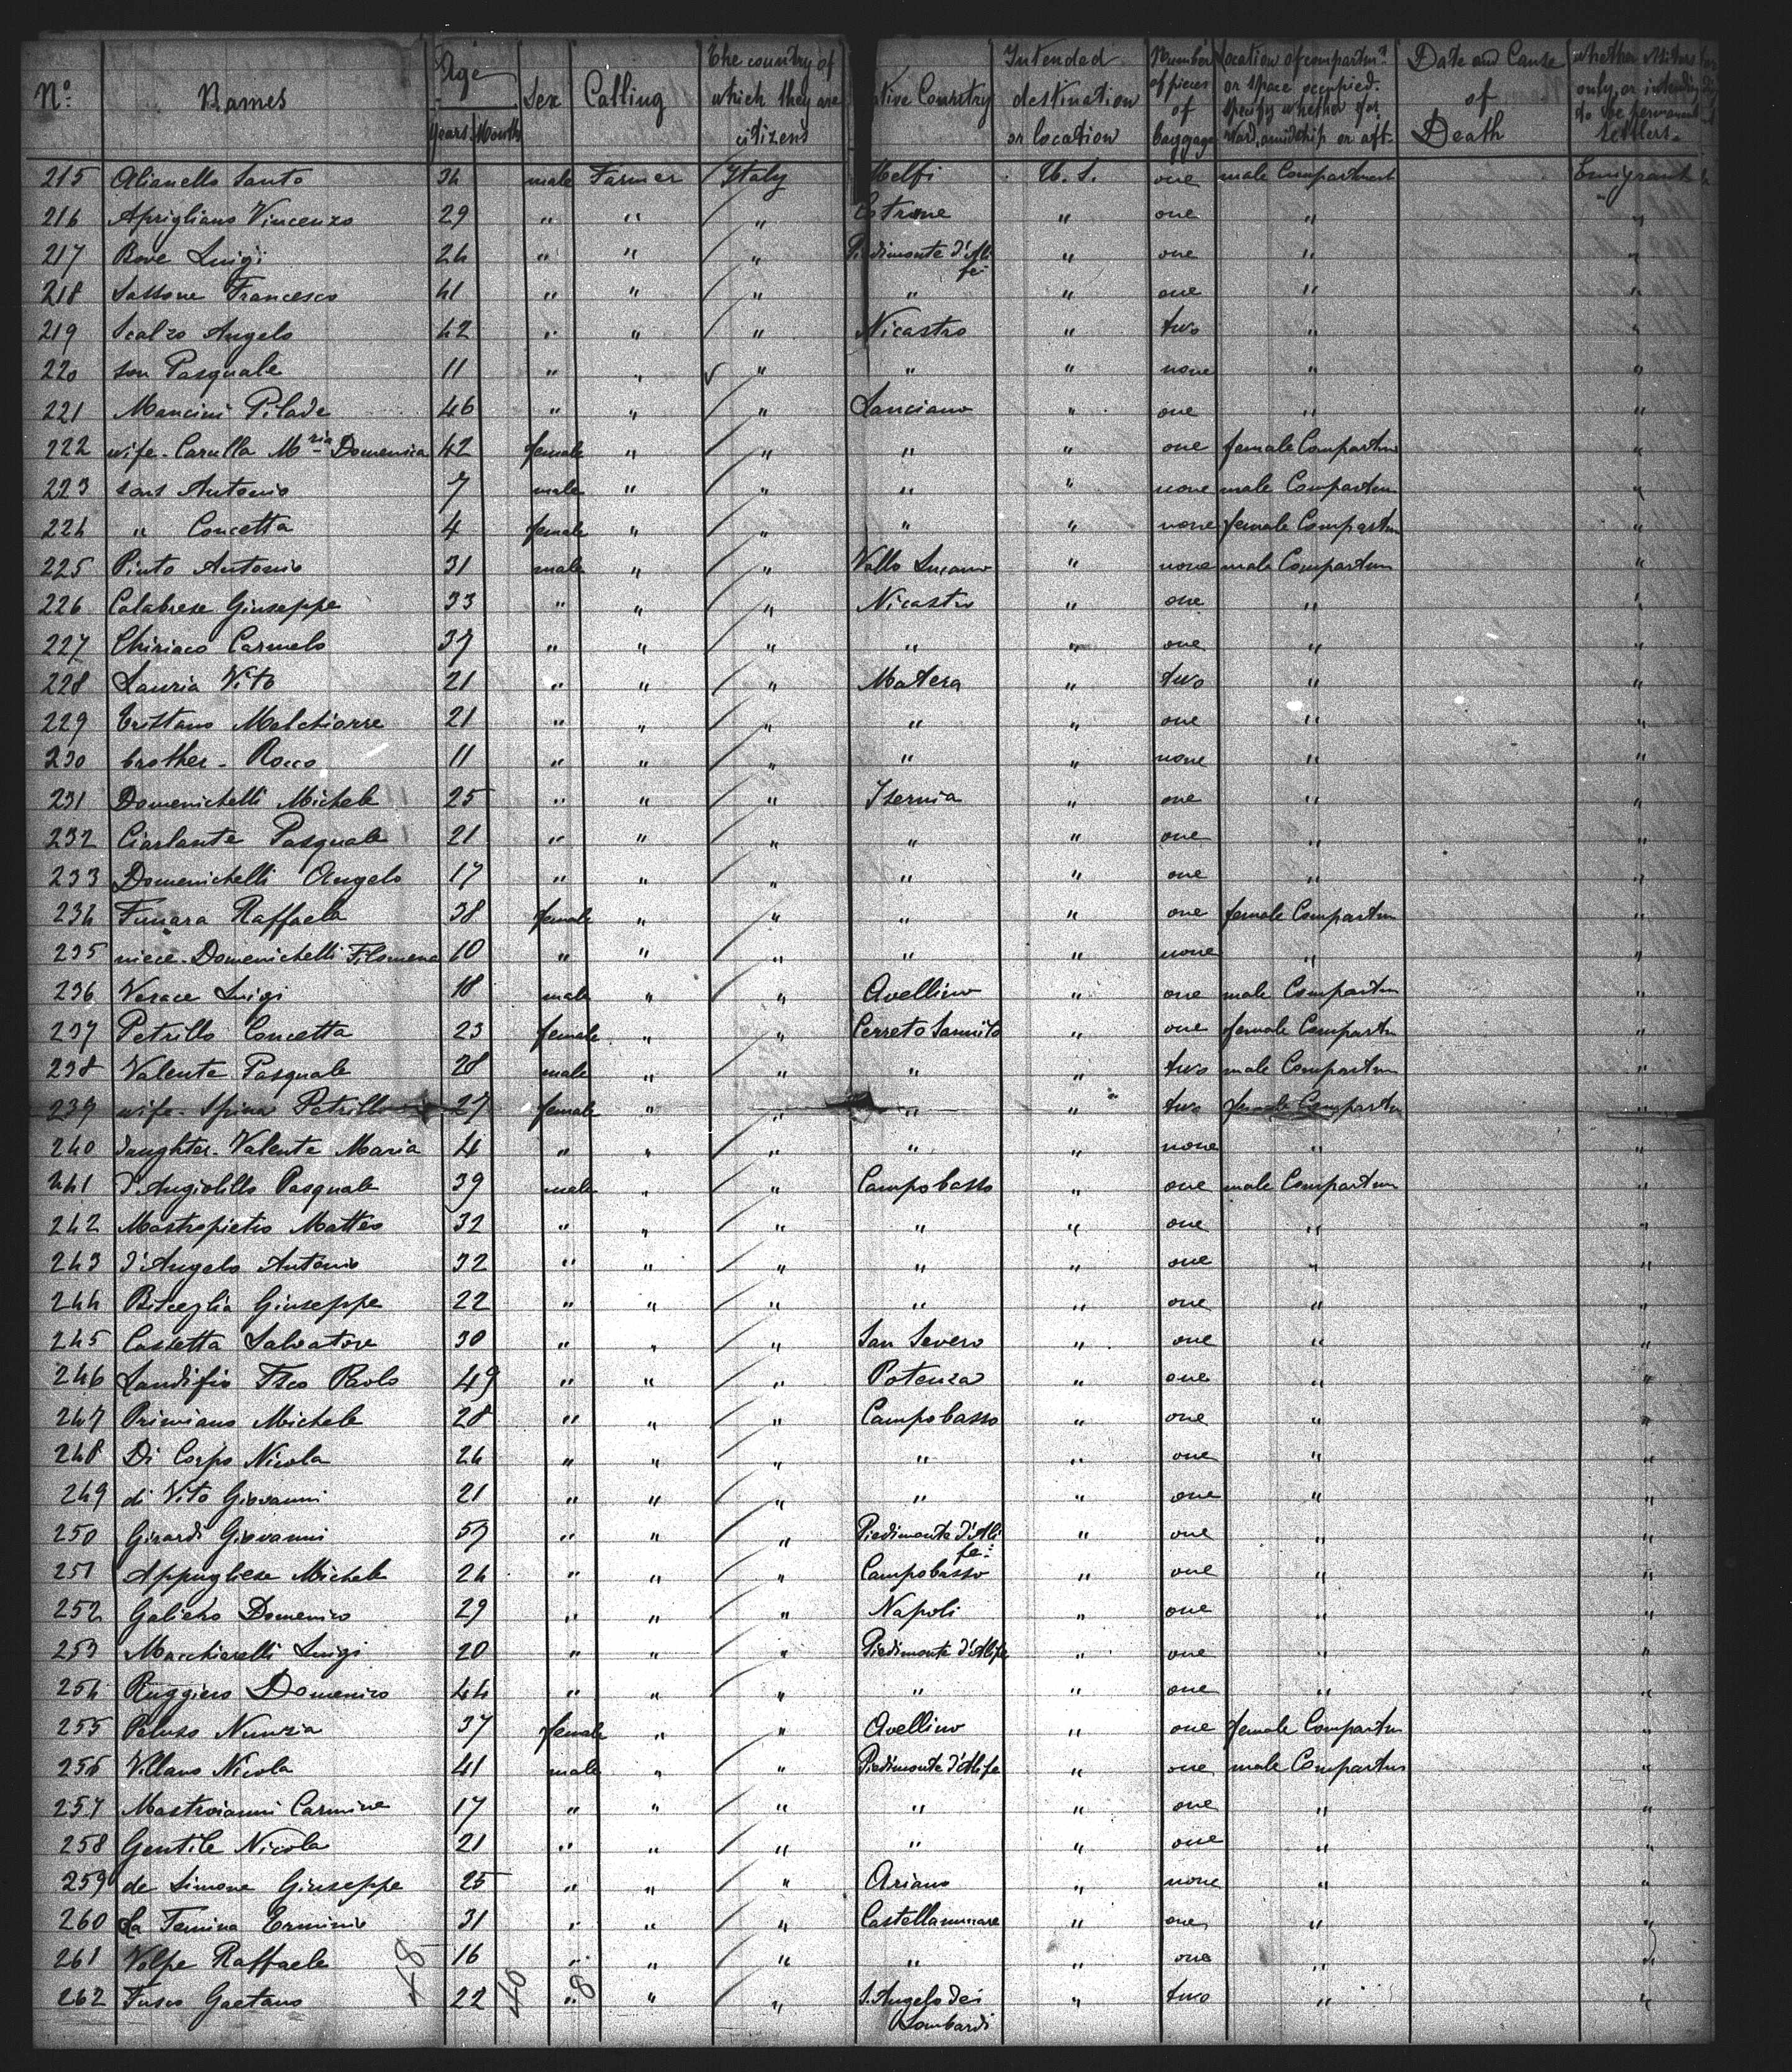 No. Names Age Years Months Sex Calling The country of which they are citizens Native Country Intended destination or location Number of pieces of baggage Location of compartmt or space occupied. Specify whether forward, amidship or aft. Date and Cause of Death whether visitors only, or intending to be permanent settlers.
215 Alianello Santo 34 male Farmer Italy Melfi U.S. one male Compartment Emigrant
216 Aprigliano Vincenzo 29 " " " Cotrone " one " "
217 Bove Luigi 24 " " " Piedimonte d'Alife " one " "
218 Sassone Francesco 41 " " " " " one " "
219 Scalzo Angelo 42 " " " Nicastro " two " "
220 son Pasquale 11 " " " " " none " "
221 Mancini Pilade 46 " " " Lanciano " one " "
222 wife - Carulla Mria Domenica 42 female " " " " one female Compartm "
223 sons Antonio 7 male " " " " none male Compartm "
224 " Concetta 4 female " " " " none female Compartm "
225 Pinto Antonio 31 male " " Vallo Lucano " none male Compartm "
226 Calabrese Giuseppe 33 " " " Nicastro " one " "
227 Chiriaco Carmelo 37 " " " " " one " "
228 Lauria Vito 21 " " " Matera " two " "
229 Trittano Malchiorre 21 " " " " " one " "
230 brother - Rocco 11 " " " " " none " "
231 Domenichelli Michele 25 " " " Isernia " one " "
232 Ciarlante Pasquale 21 " " " " " one " "
233 Domenichelli Angelo 17 " " " " " one " "
234 Funara Raffaela 38 female " " " " one female Compartm "
235 niece - Domenichelli Filomena 10 " " " " " none " "
236 Verace Luigi 18 male " " Avellino " one male Compartm "
237 Petrillo Concetta 23 female " " Cerreto Sannito " one female Compartm "
238 Valente Pasquale 28 male " " " " two male Compartm "
239 wife - Spina Petrillo 27 female " " " " two female Compartm "
240 daughter - Valente Maria 4 " " " " " none " "
241 d'Angiolillo Pasquale 39 male " " Campobasso " one male Compartm "
242 Mastropietro Matteo 32 " " " " " one " "
243 d'Angelo Antonio 32 " " " " " one " "
244 Bisceglia Giuseppe 22 " " " " " one " "
245 Cassetta Salvatore 30 " " " San Severo " one " "
246 Landifio Fsco Paolo 49 " " " Potenza " one " "
247 Primiano Michele 28 " " " Campobasso " one " "
248 Di Corpo Nicola 24 " " " " " one " "
249 di Vito Giovanni 21 " " " " " one " "
250 Girardi Giovanni 57 " " " Piedimonte d'Alife " one " "
251 Appugliese Michele 24 " " " Campobasso " one " "
252 Galiero Domenico 29 " " " Napoli " one " "
253 Macchiarelli Luigi 20 " " " Piedimonte d'Alife " one " "
254 Ruggiero Domenico 44 " " " " " one " "
255 Peluso Nunzia 37 female " " Avellino " one female Compartm "
256 Villano Nicola 41 male " " Piedimonte d'Alife " one male Compartm "
257 Mastroianni Carmine 17 " " " " " one " "
258 Gentile Nicola 21 " " " " " one " "
259 de Simone Giuseppe 25 " " " Ariano " none " "
260 La Femina Erminio 31 " " " Castellammare " one " "
261 Volpe Raffaele 16 " " " " " one " "
262 Fusco Gaetano 22 " " " S. Angelo dei Lombardi " two " "
48 40 8